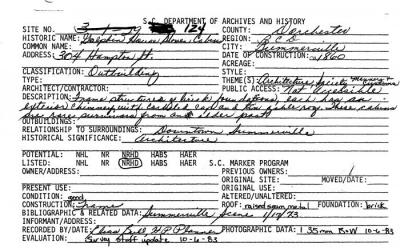 S.C. DEPARTMENT OF ARCHIVES AND HISTORY
SITE NO. 124 COUNTY: Dorchester
HISTORIC NAME: House Slave Cabin REGION: BCD
COMMON NAME: CITY: Summerville
ADDRESS: 304 Hampton St. DATE OF CONSTRUCTION: 1860
ACREAGE:
CLASSIFICATION: Outbuilding STYLE:
TYPE: THEME: Architecture
ARCHITECT/CONTRACTOR: PUBLIC ACCESS: Not Accessible
DESCRIPTION: Frame structures w/brick foundations, each has an
exterior chimney with corbeled cap and tin gable roof. These cabins
are rare survivors from an older past.
OUTBUILDINGS:
RELATIONSHIP TO SURROUNDINGS: Downtown Summerville
HISTORICAL SIGNIFICANCE: Architecture
POTENTIAL: NHL NR NRHD HABS HAER
LISTED: NHL NR NRHD HABS HAER S.C. MARKER PROGRAM
OWNER/ADDRESS: PREVIOUS OWNERS:
ORIGINAL SITE: MOVED/DATE:
PRESENT USE: ORIGINAL USE:
CONDITION: good ALTERED/UNALTERED:
CONSTRUCTION: Frame ROOF: raised seam metal FOUNDATION: brick
BIBLIOGRAPHIC & RELATED DATA: Summerville Scene 1/17/73
INFORMANT/ADDRESS:
RECORDED BY/DATE: H.P. Planner PHOTOGRAPHIC DATA: 1 35mm B+W 10-6-83
EVALUATION: Survey staff update 10-6-83